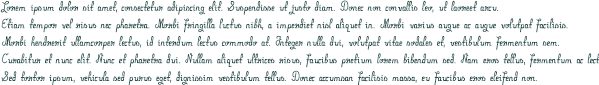 Lorem ipsum dolor sit amet, consectetur adipiscing elit. Suspendisse ut justo diam. Donec non convallis leo, ut laoreet arcu.
Etiam tempor vel risus nec pharetra. Morbi fringilla luctus nibh, a imperdiet nisl aliquet in. Morbi varius augue ac augue volutpat facilisis.
Morbi hendrerit ullamcorper lectus, id interdum lectus commodo at. Integer nulla dui, volutpat vitae sodales et, vestibulum fermentum sem.
Curabitur et nunc elit. Nunc et pharetra dui. Nullam aliquet ultrices risus, faucibus pretium lorem bibendum sed. Nam eros tellus, fermentum ac lect
Sed tortor ipsum, vehicula sed purus eget, dignissim vestibulum tellus. Donec accumsan facilisis massa, eu faucibus eros eleifend non.